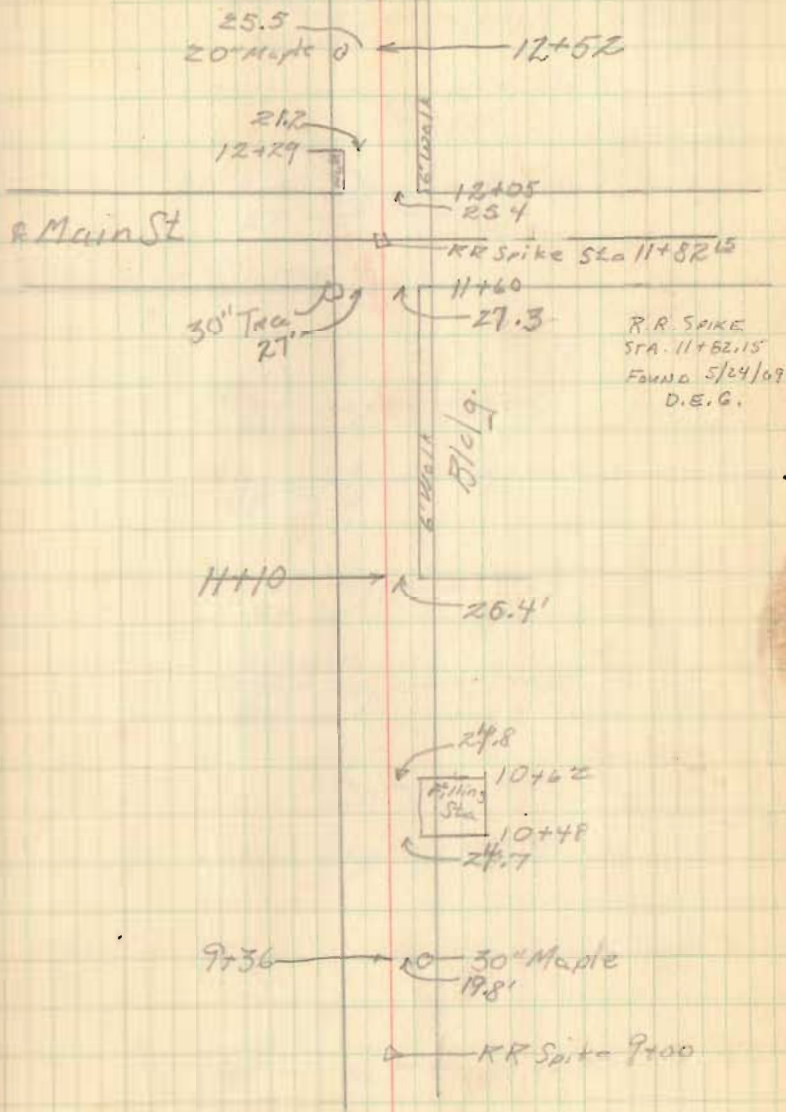 25.5
20" Maple
12+52
21.2
12+29
6' Walk
12+05
25.4
Main St
RR Spike Sta 11+82.15
11+60
30" Tree
27'
27.3
R.R. SPIKE
STA. 11+82.15
FOUND 5/24/69
D.E.G.
Bldg.
6' Walk
11+10
26.4'
24.8
10+62
Filling
Sta
10+48
24.7
9+36
30" Maple
19.8'
RR Spike 9+00